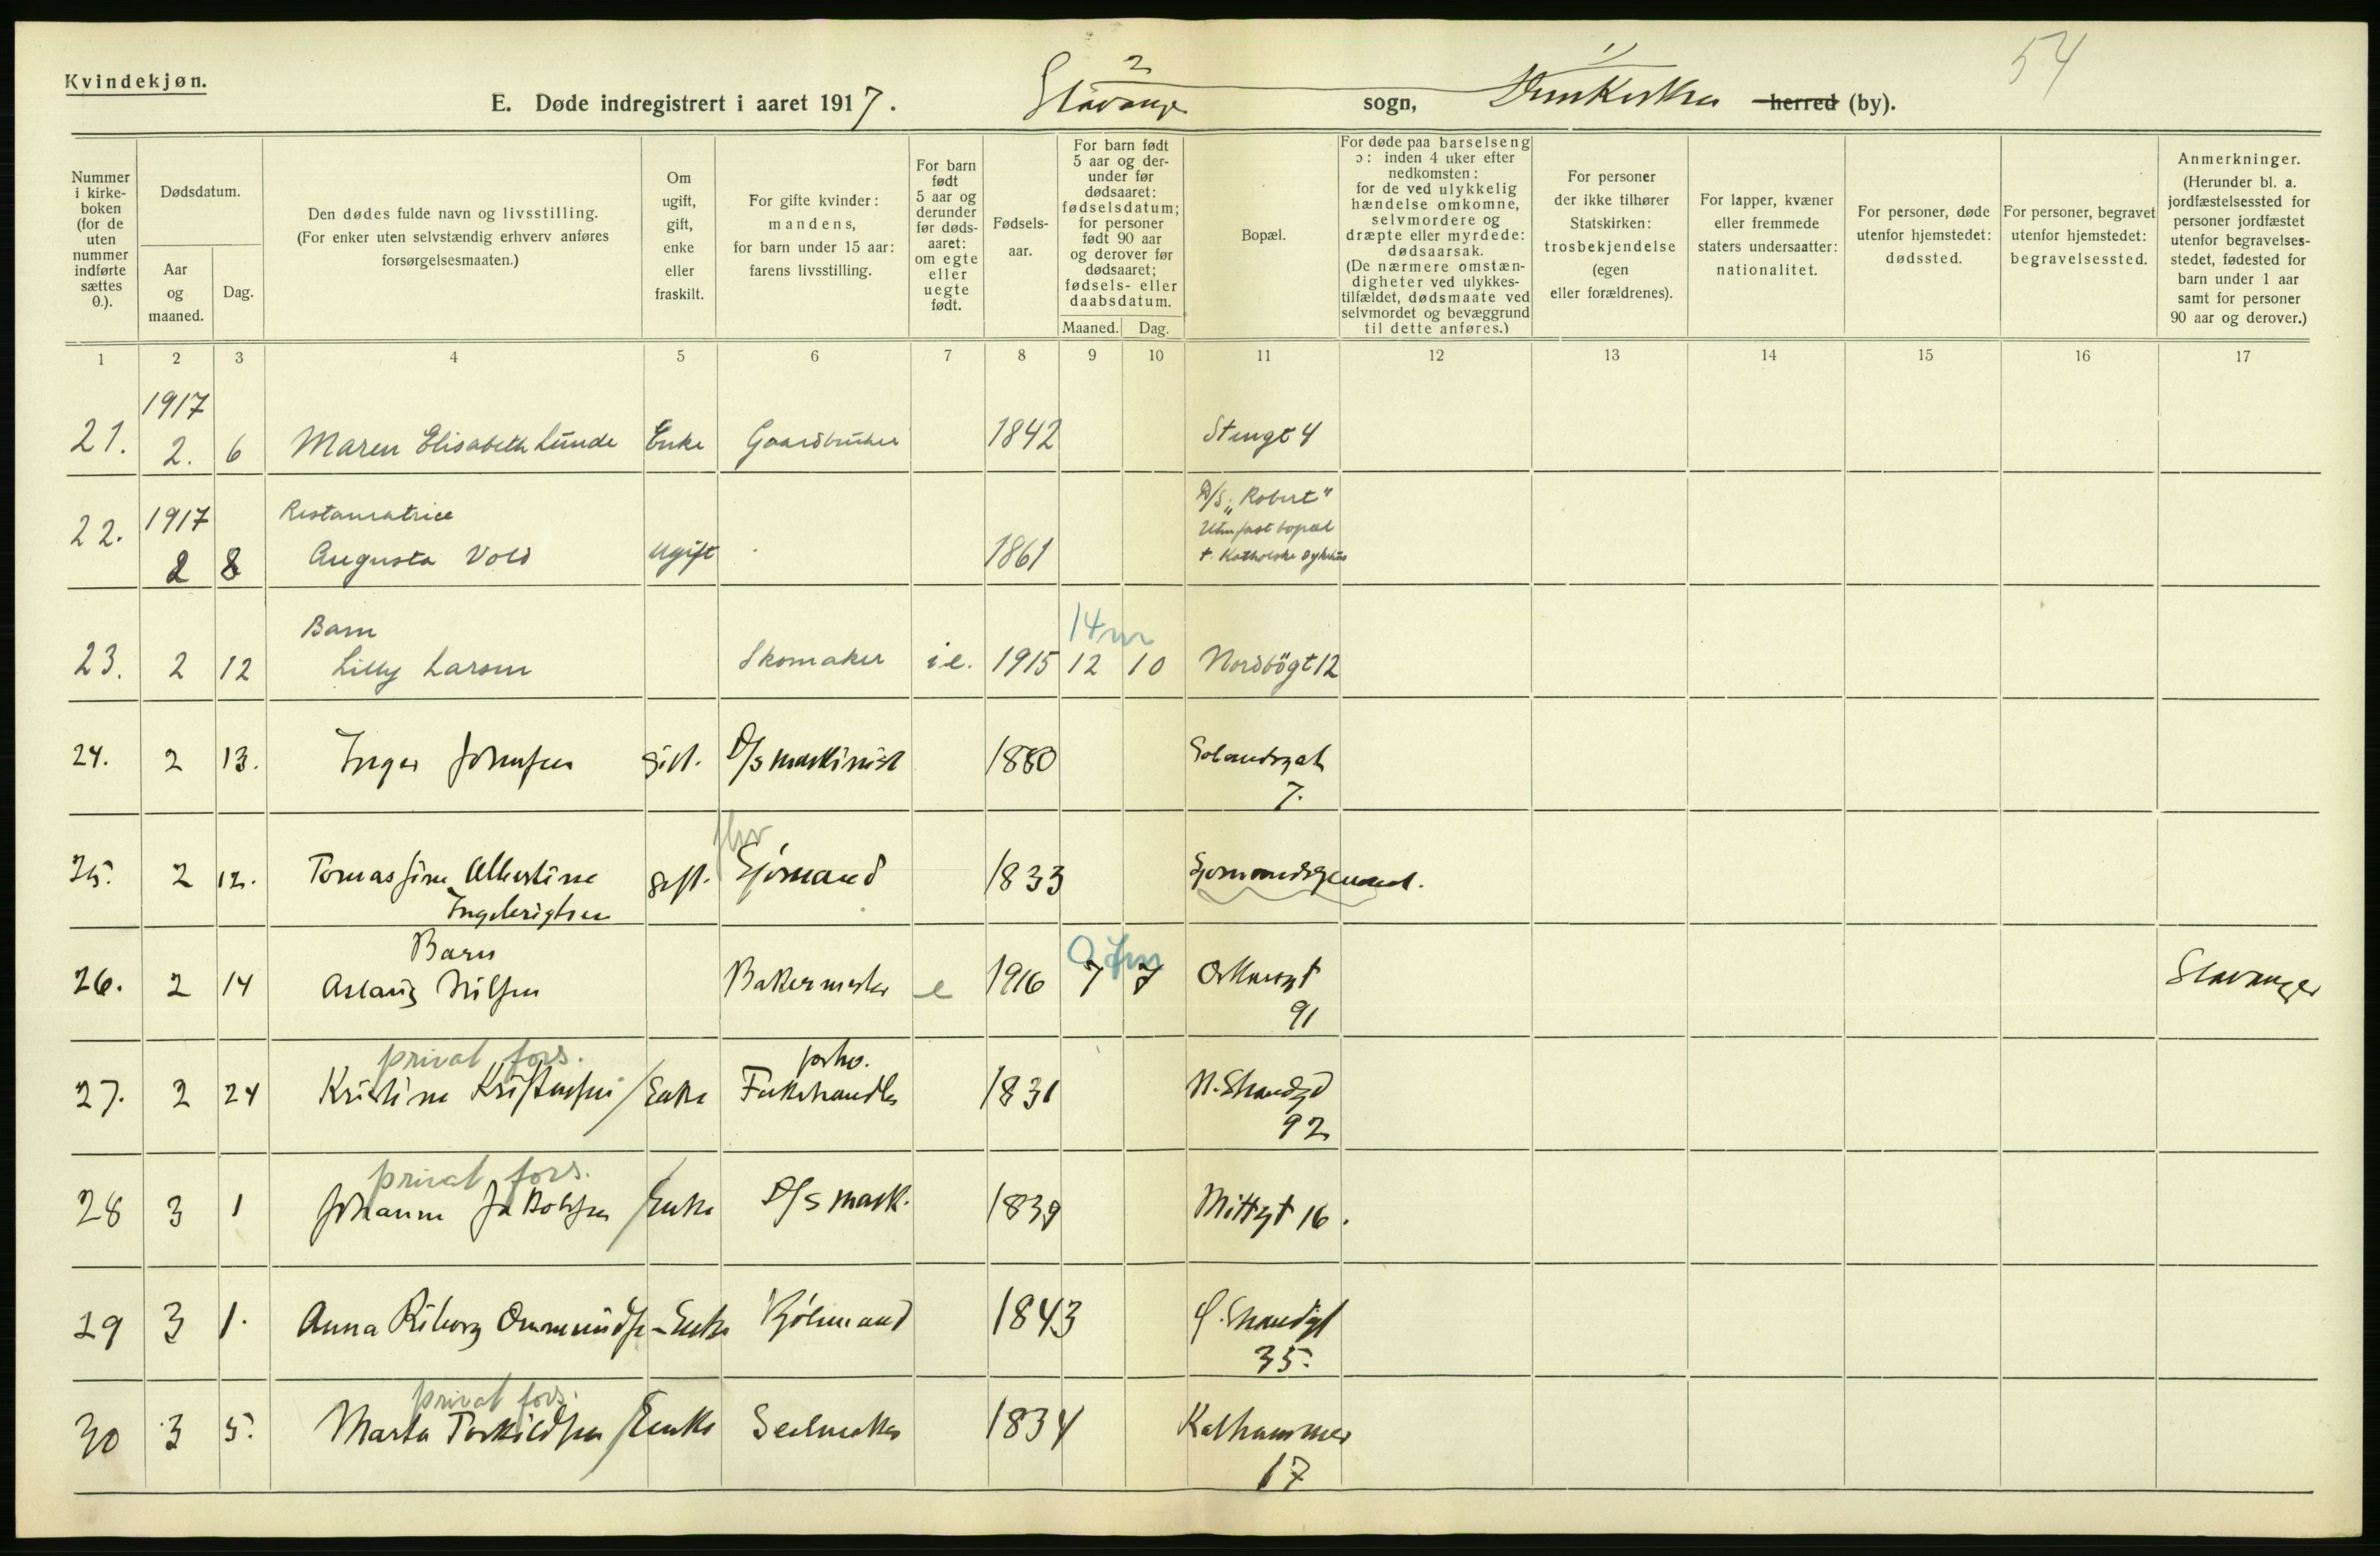 Kvindekjøn.
54
E. Døde indregistrert i aaret 1917. 2 Stavanger sogn, herred (by).
Nummer i kirkeboken (for de uten nummer indførte sættes 0.).
Dødsdatum.
Aar og maaned.
Dag.
Den dødes fulde navn og livsstilling.
(For enker uten selvstændig erhverv anføres
forsørgelsesmaaten.)
Om ugift, gift, enke eller fraskilt.
For gifte kvinder:
mandens,
for barn under 15 aar:
farens livsstilling.
For barn født 5 aar og derunder før dødsaaret: om egte eller uegte født.
Fødselsaar.
For barn født 5 aar og derunder før dødsaaret: fødselsdatum; for personer født 90 aar og derover før dødsaaret; fødsels- eller daabsdatum.
Maaned. Dag.
Bopæl.
For døde paa barselseng
ɔ: inden 4 uker efter
nedkomsten:
for de ved ulykkelig
hændelse omkomne,
selvmordere og
dræpte eller myrdede:
dødsaarsak.
(De nærmere omstæn-
digheter ved ulykkes-
tilfældet, dødsmaate ved
selvmordet og bevæggrund
til dette anføres.)
For personer
der ikke tilhører
Statskirken:
trosbekjendelse
(egen
eller forældrenes).
For lapper, kvæner
eller fremmede
staters undersaatter:
nationalitet.
For personer, døde
utenfor hjemstedet:
dødssted.
For personer, begravet
utenfor hjemstedet:
begravelsessted.
Anmerkninger.
(Herunder bl. a.
jordfæstelsessted for
personer jordfæstet
utenfor begravelses-
stedet, fødested for
barn under 1 aar
samt for personer
90 aar og derover.)
1 2 3 4 5 6 7 8 9 10 11 12 13 14 15 16 17
1917
21. 2. 6 Maren Elisabeth Lunde Enke Gaardbruker 1842 Stengt 4
1917 Restauratrice D/S „Robert"
Uten fast bopæl
22. 2 8 Augusta Vold ugift 1861 t. Katholske sykhus
Barn 14 m
23. 2 12 Lilly Larsen Skomaker i.e. 1915 12 10 Nordbögt 12
24. 2 13. Inger Johnsen gift. D/s maskinist 1880
7.
25. 2 12. Tomasine Albertine gift. Sjømand 1833
Ingebrigtsen
Barn 7m
26. 2 14 Aslaug Nilsen Bakermester e 1916 7 7 Stavanger
91
privat fors. forhv.
27. 2 24 Kristine Kristensen Enke 1831 N. Strandgd
92
privat fors.
28 3 1 Johanne Jakobsen Enke D/S mask. 1839 Midtgt 16.
29 3 1. Anna Riborg Ommundsen Enke Sjømand 1843 Ø. Strandgt
35.
privat fors.
30 3 5. Marta Torkildsen Enke Seilmaker 1834 Kalhammer
17